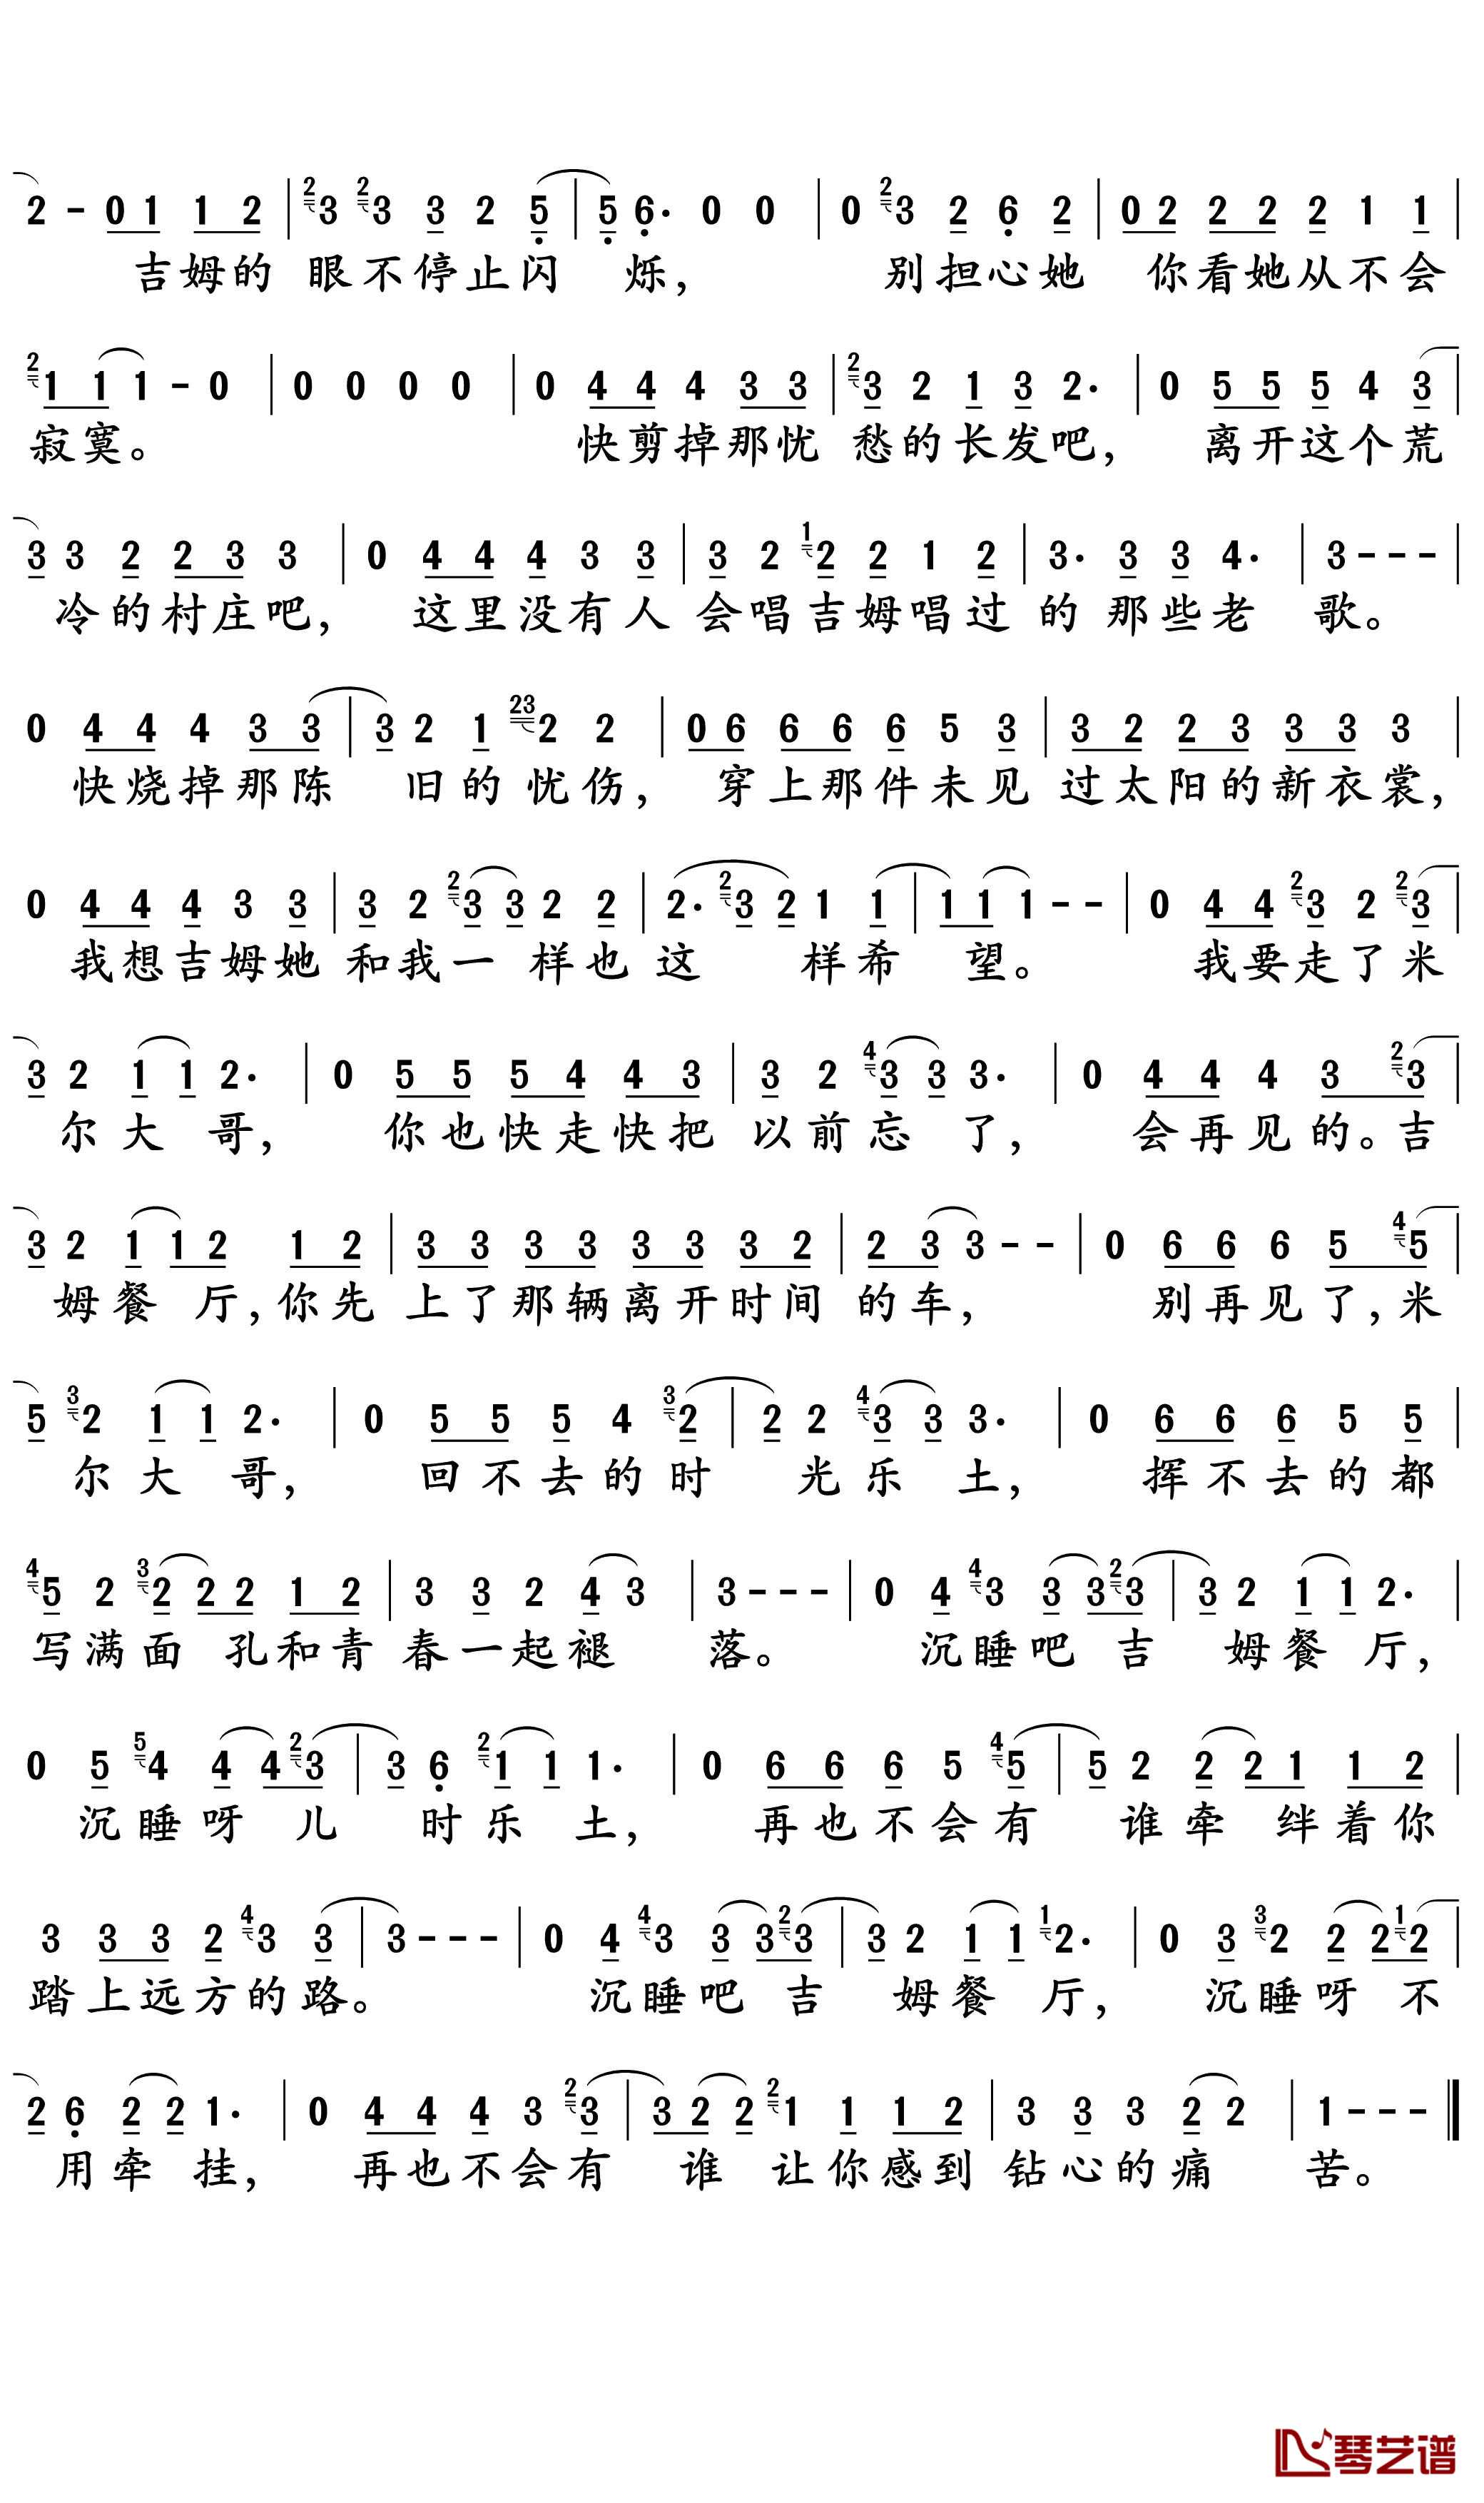 2 - 0 1 1 2 | 2 3 2 3 3 2 5 | 5 6· 0 0 | 0 2 3 2 6 2 | 0 2 2 2 2 1 1 |
吉姆的 眼不停止闪 烁， 别担心她 你看她从不会
2 1 1 1 - 0 | 0 0 0 0 | 0 4 4 4 3 3 | 2 3 2 1 3 2· | 0 5 5 5 4 3 |
寂寞。 快剪掉那忧 愁的长发吧， 离开这个荒
3 3 2 2 3 3 | 0 4 4 4 3 3 | 3 2 1 2 2 1 2 | 3· 3 3 4· | 3 - - - |
冷的村庄吧， 这里没有人 会唱吉姆唱过 的 那些老 歌。
0 4 4 4 3 3 | 3 2 1 23 2 2 | 0 6 6 6 6 5 3 | 3 2 2 3 3 3 3 |
快烧掉那陈 旧的忧伤， 穿上那件未见 过太阳的新衣裳，
0 4 4 4 3 3 | 3 2 2 3 3 2 2 | 2· 2 3 2 1 1 | 1 1 1 - - | 0 4 4 2 3 2 2 3 |
我想吉姆她 和我一 样也 这 样希 望。 我要走了米
3 2 1 1 2· | 0 5 5 5 4 4 3 | 3 2 4 3 3 3· | 0 4 4 4 3 2 3 |
尔大 哥， 你也快走快把 以前忘 了， 会再见的。吉
3 2 1 1 2 1 2 | 3 3 3 3 3 3 3 2 | 2 3 3 - - | 0 6 6 6 5 4 5 |
姆餐 厅，你先 上了那辆离开时间 的车， 别再见了，米
5 3 2 1 1 2· | 0 5 5 5 4 3 2 | 2 2 4 3 3 3· | 0 6 6 6 5 5 |
尔大 哥， 回不去的时 光乐 土， 挥不去的都
4 5 2 3 2 2 2 1 2 | 3 3 2 4 3 | 3 - - - | 0 4 4 3 3 3 2 3 | 3 2 1 1 2· |
写满面 孔和青 春一起褪 落。 沉睡吧 吉 姆餐 厅，
0 5 5 4 4 4 2 3 | 3 6 2 1 1 1· | 0 6 6 6 5 4 5 | 5 2 2 2 1 1 2 |
沉睡呀 儿 时乐 土， 再也不会有 谁牵 绊着你
3 3 3 2 4 3 3 | 3 - - - | 0 4 4 3 3 3 2 3 | 3 2 1 1 1 2· | 0 3 3 2 2 2 1 2 |
踏上远方的路。 沉睡吧 吉 姆餐 厅， 沉睡呀 不
2 6 2 2 1· | 0 4 4 4 3 2 3 | 3 2 2 2 1 1 1 2 | 3 3 3 2 2 | 1 - - - |
用牵 挂， 再也不会有 谁 让你感到 钻心的痛 苦。
琴艺谱